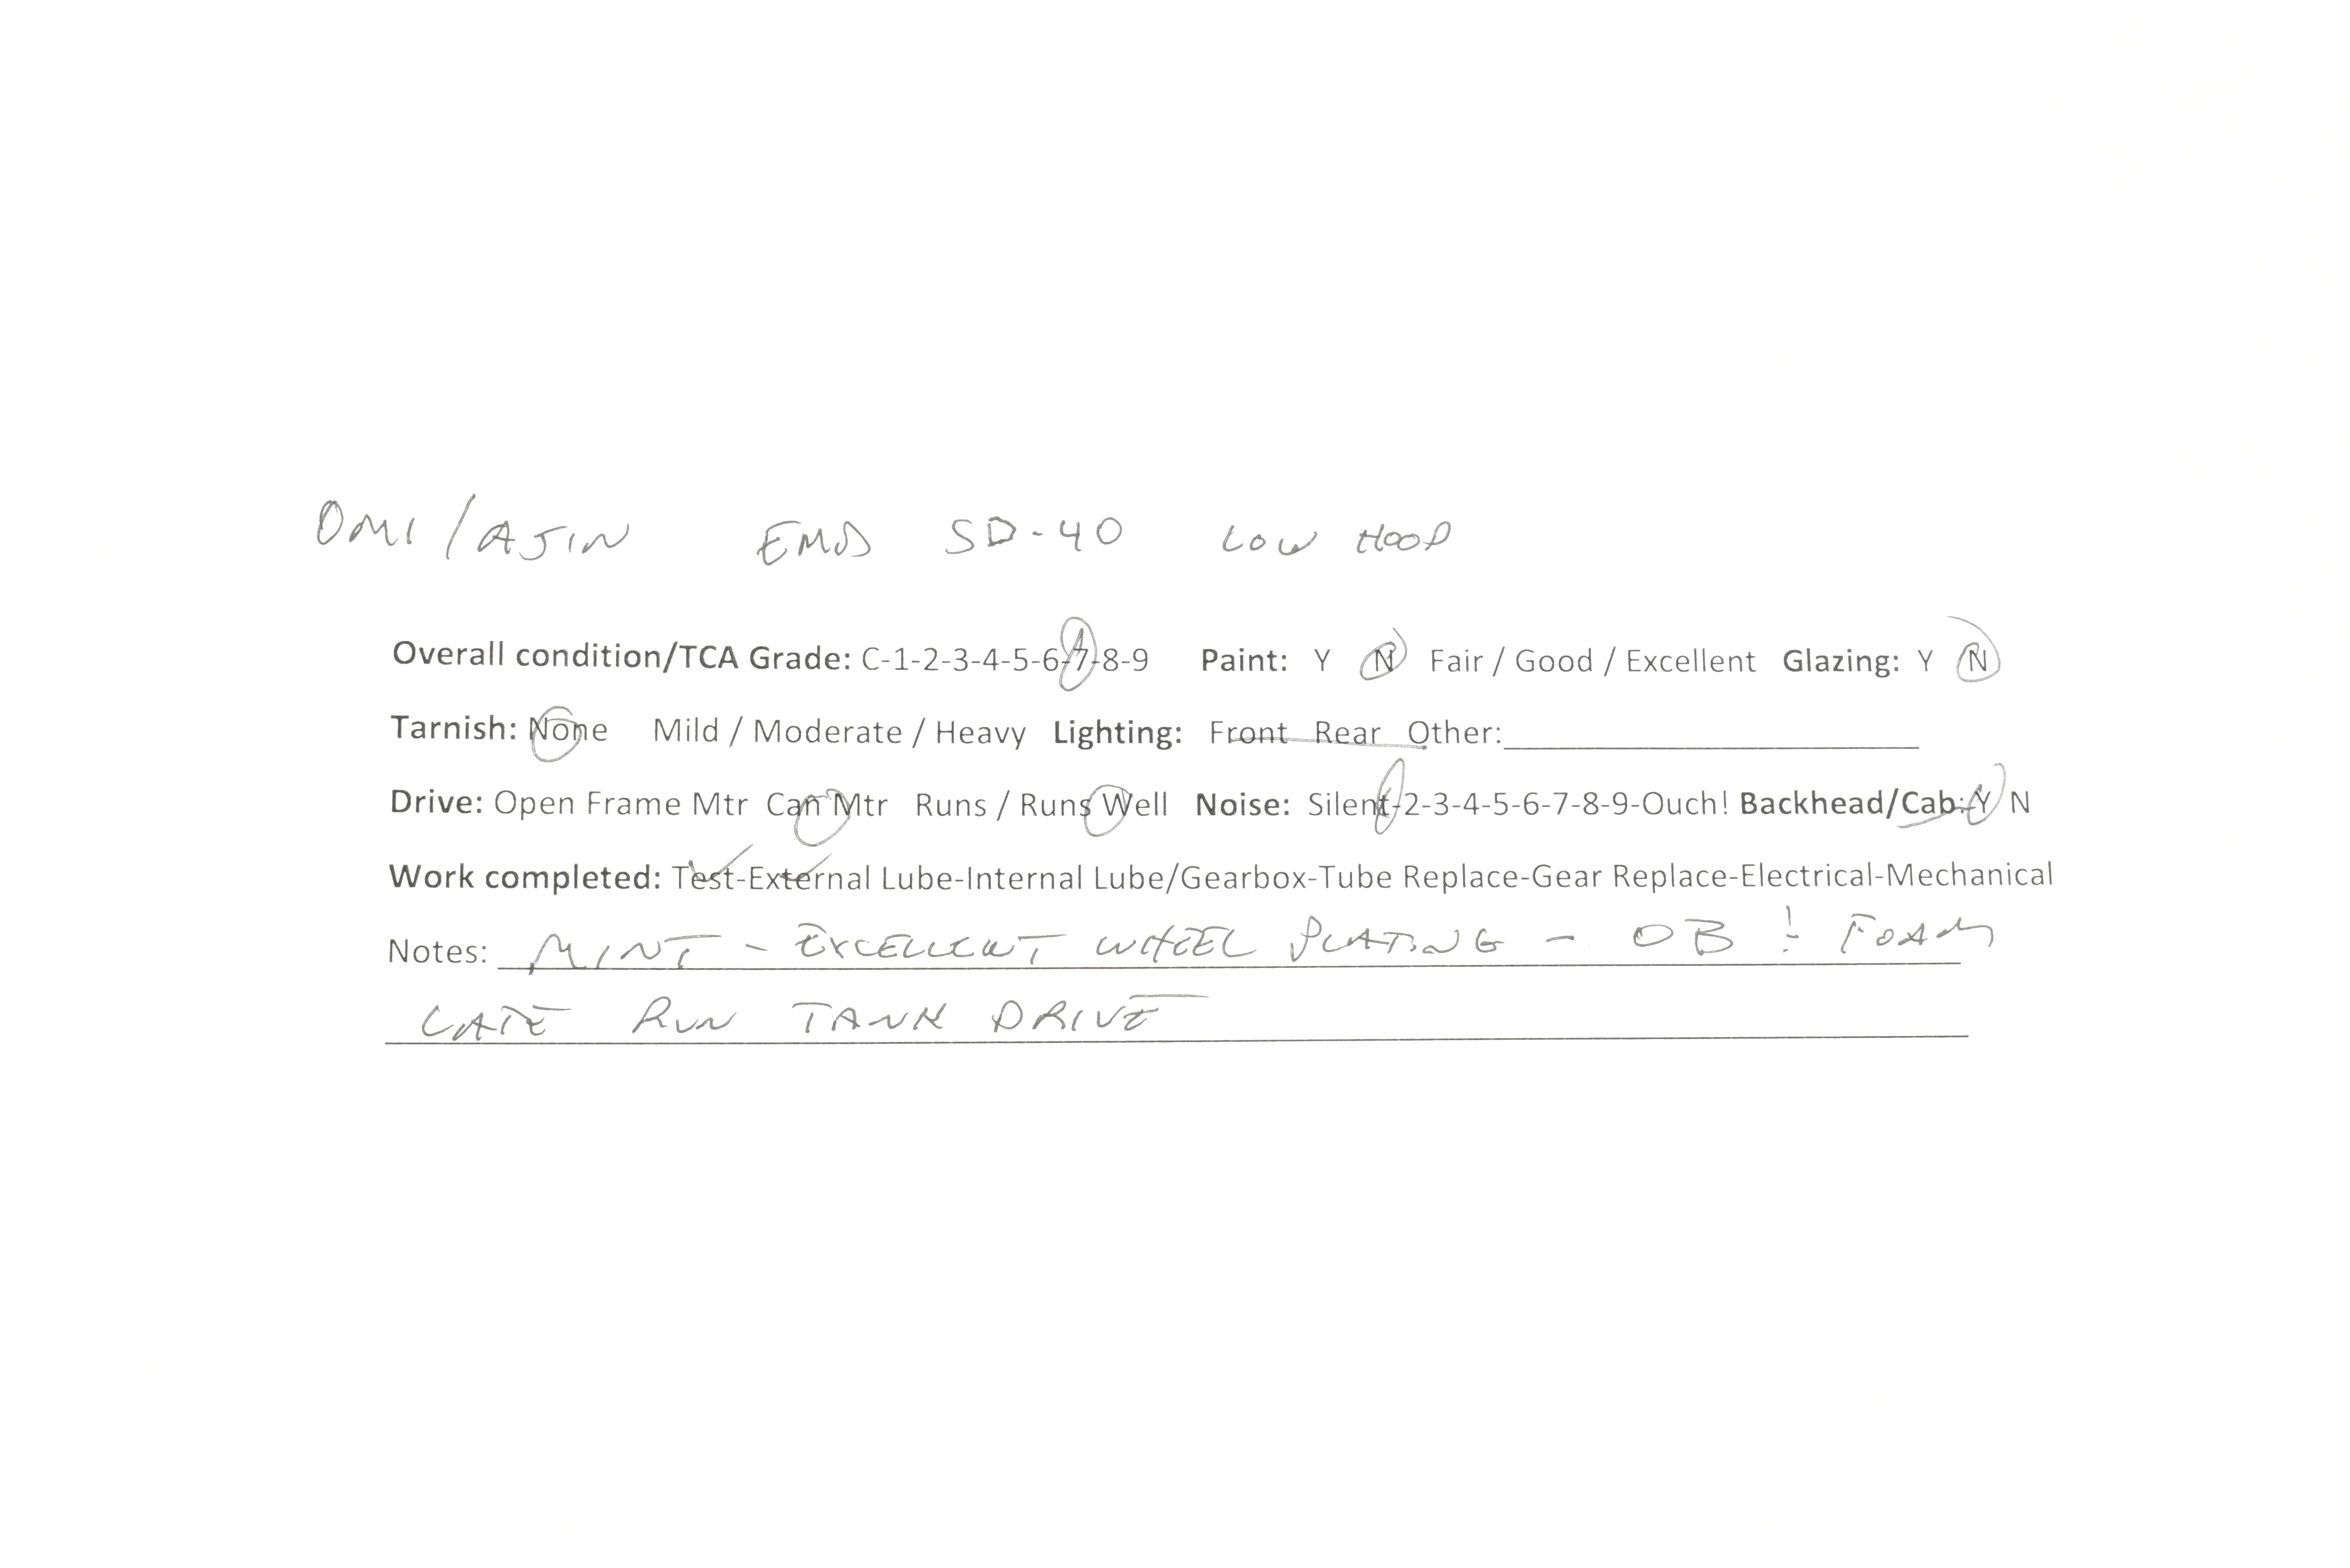 OMI/AJIN EMD SD-40 LOW HOOD
Overall condition/TCA Grade: C-1-2-3-4-5-6-7-8-9 Paint: Y N Fair / Good / Excellent Glazing: Y N
Tarnish: None Mild / Moderate / Heavy Lighting: Front Rear Other:
Drive: Open Frame Mtr Can Mtr Runs / Runs Well Noise: Silent-2-3-4-5-6-7-8-9-Ouch! Backhead/Cab: Y N
Work completed: Test-External Lube-Internal Lube/Gearbox-Tube Replace-Gear Replace-Electrical-Mechanical
Notes: MINT - EXCELLENT WHEEL PLATING - OB ÷ FOAM
LATE RUN TANK DRIVE